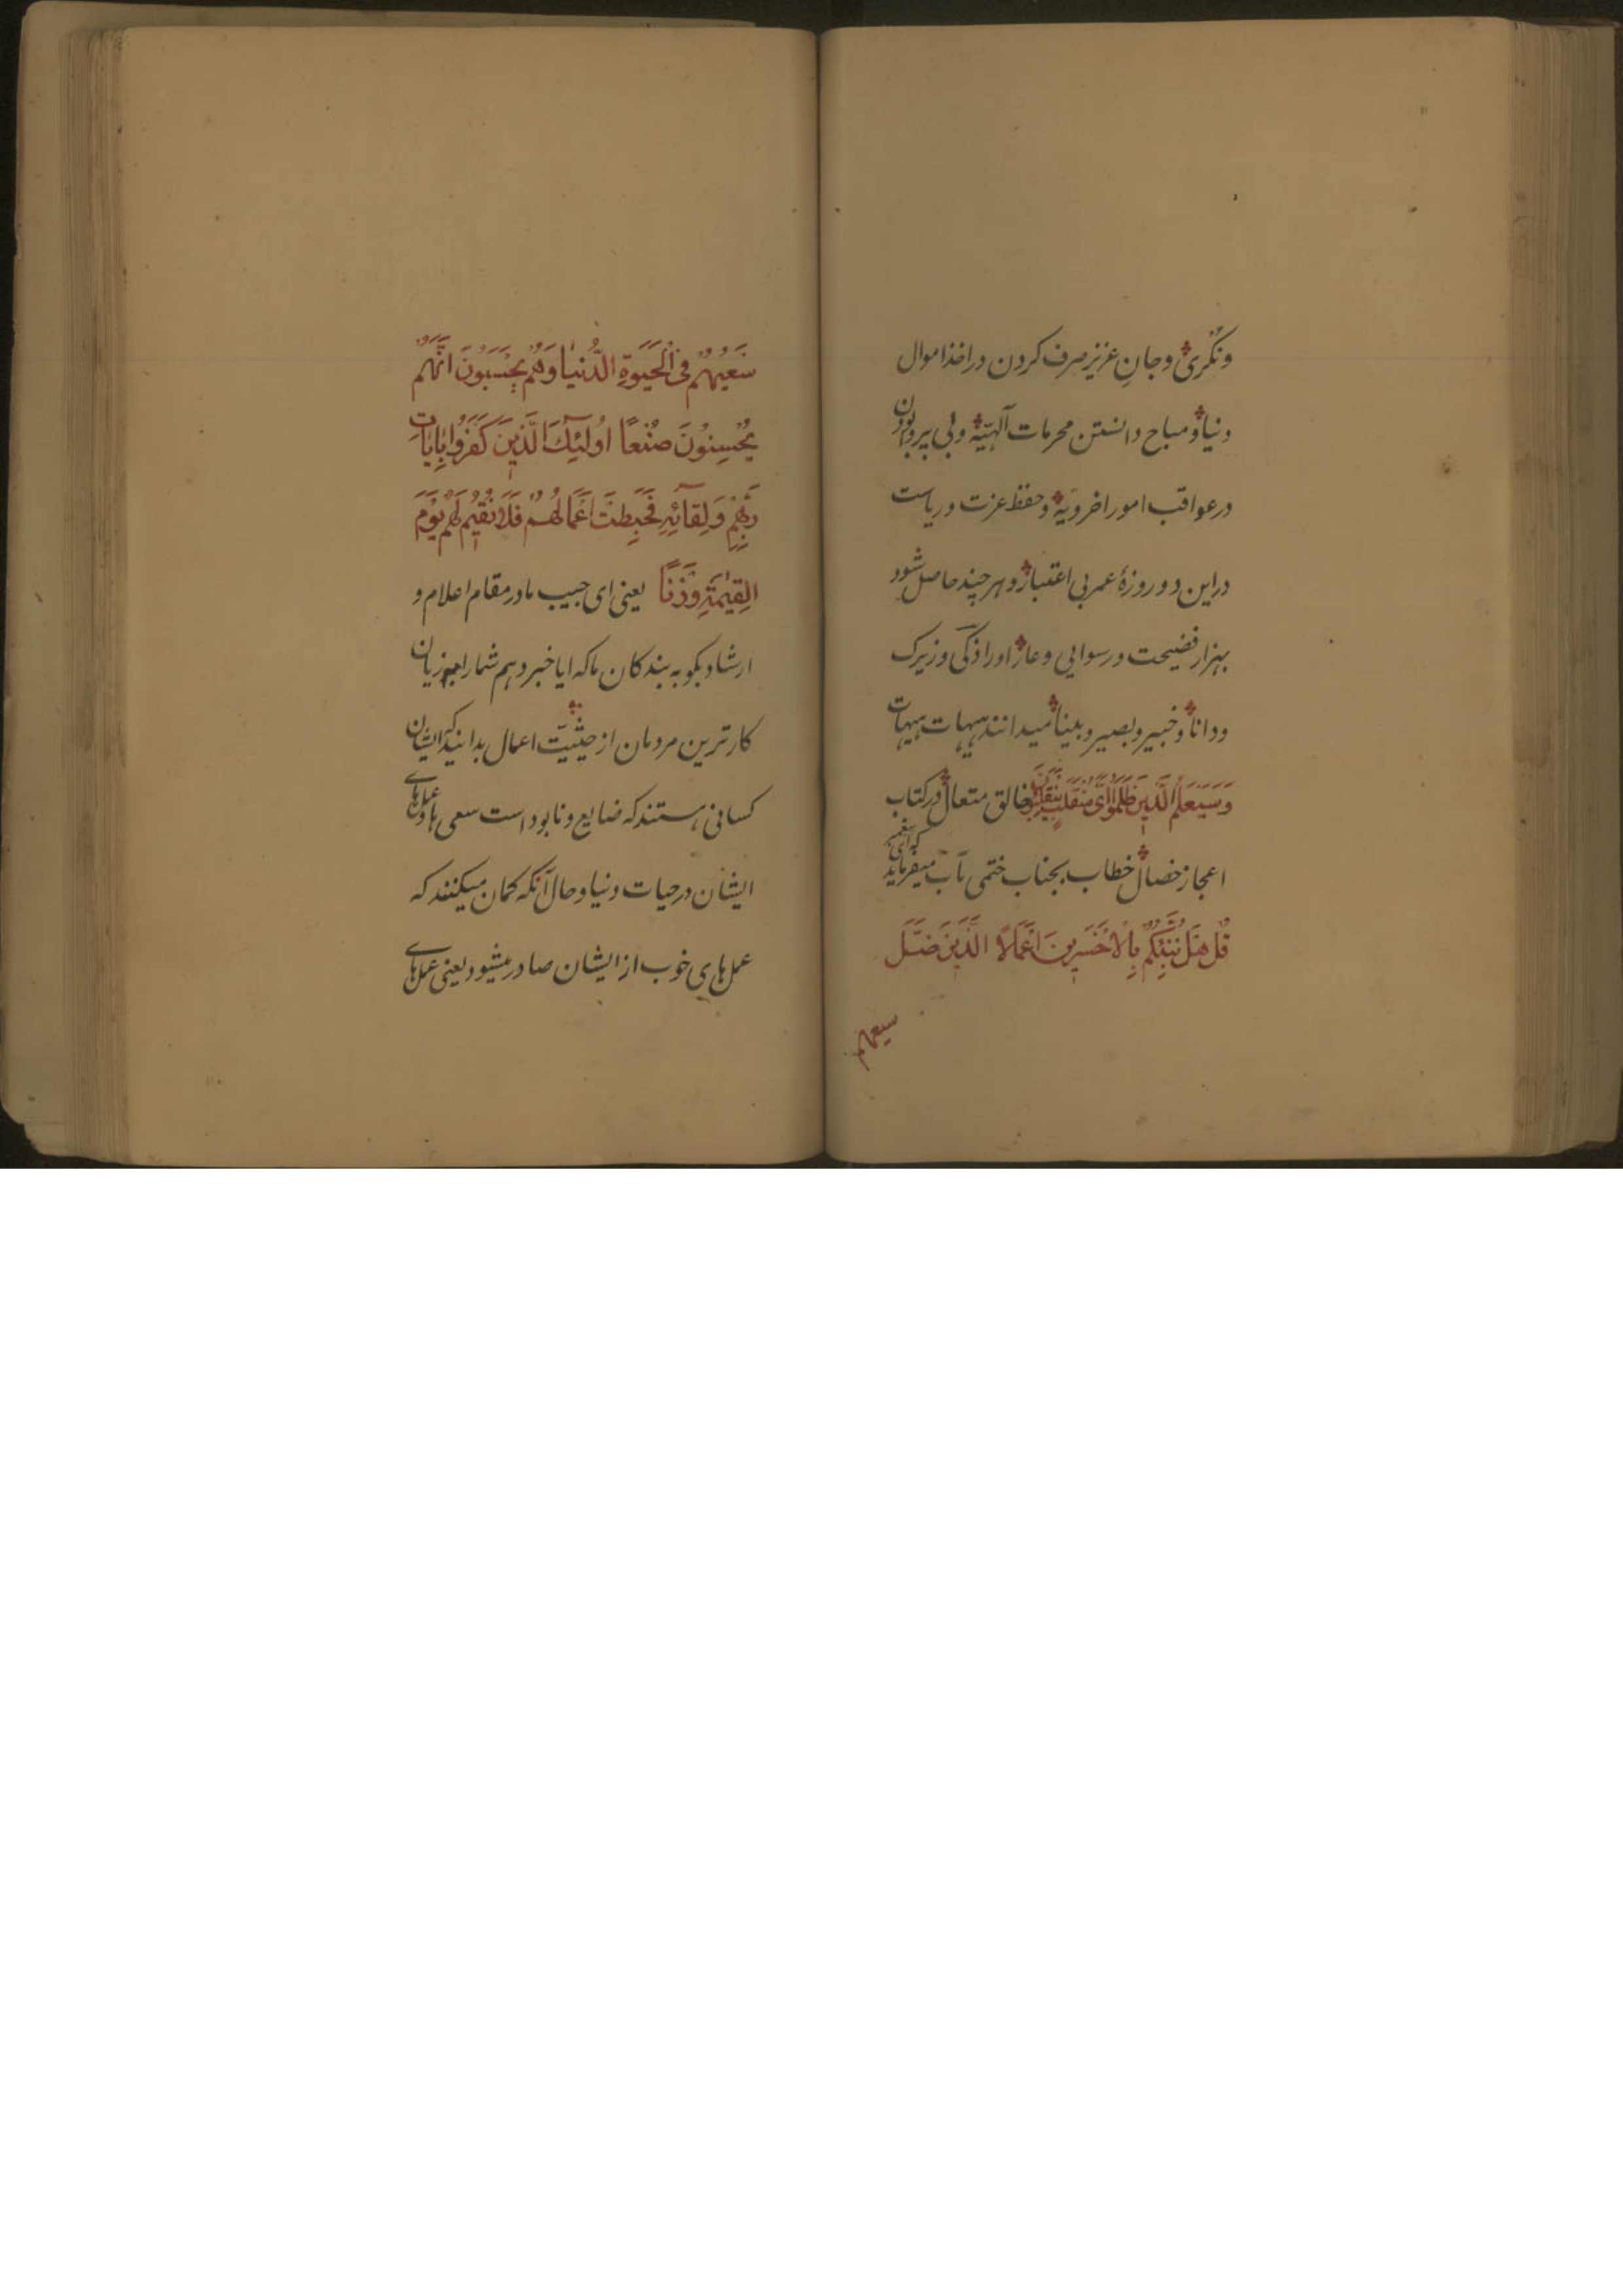 ونکری وجان عزیز صرف کردن در اخذ اموال
دنیا و مباح دانستن محرمات آلهیّه و بی پروا بودن
در عواقب امور اخرویّه و حفظ عزت و ریاست
در این دو روزهٔ عمر بی اعتبار و هر چند حاصل شود
بهزار فضیحت و رسوایی و عار او را ذکی و زیرک
و دانا و خبیر و بصیر و بینا میدانند هیهات هیهات
وَسَیَعْلَمُ الَّذینَ ظَلَمُوا اَیَّ مُنْقَلَبٍ یَنْقَلِبُونَ خالق متعال در کتاب
اعجاز خصال خطاب بجناب ختمی مآب میفرماید که ای پیغمبر
قُلْ هَلْ نُنَبِّئُکُمْ بِالْاَخْسَرینَ اَعْمالًا الَّذینَ ضَلَّ
سیعهم
سَعْیُهُمْ فِی الْحَیٰوةِ الدُّنْیا وَهُمْ یَحْسَبُونَ اَنَّهُمْ
یُحْسِنُونَ صُنْعًا اُولئِکَ الَّذینَ کَفَرُوا بِایاتِ
رَبِّهِمْ وَلِقائِهِ فَحَبِطَتْ اَعْمالُهُمْ فَلا نُقیمُ لَهُمْ یَوْمَ
الْقِیٰمَةِ وَزْنًا یعنی ای حبیب ما در مقام اعلام و
ارشاد بکو به بندکان ما که ایا خبر دهم شما را بزیان
کارترین مردمان از حیثیّت اعمال بدانید که ایشان
کسانی هستند که ضایع و نابود است سعی ها و عملهای
ایشان در حیات دنیا و حال آنکه کمان میکنند که
عمل های خوب از ایشان صادر میشود یعنی عملهای